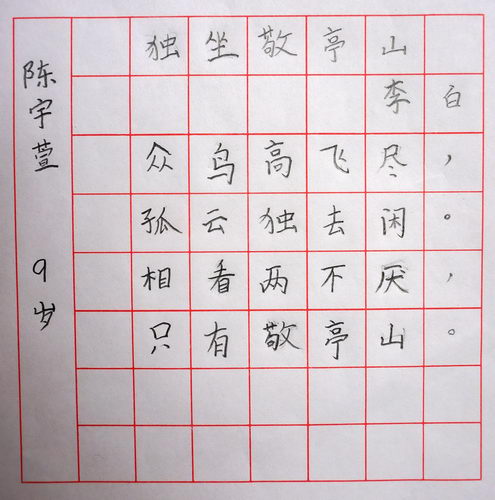 独坐敬亭山
李白
众鸟高飞尽，
孤云独去闲。
相看两不厌，
只有敬亭山。
陈宇萱 9岁